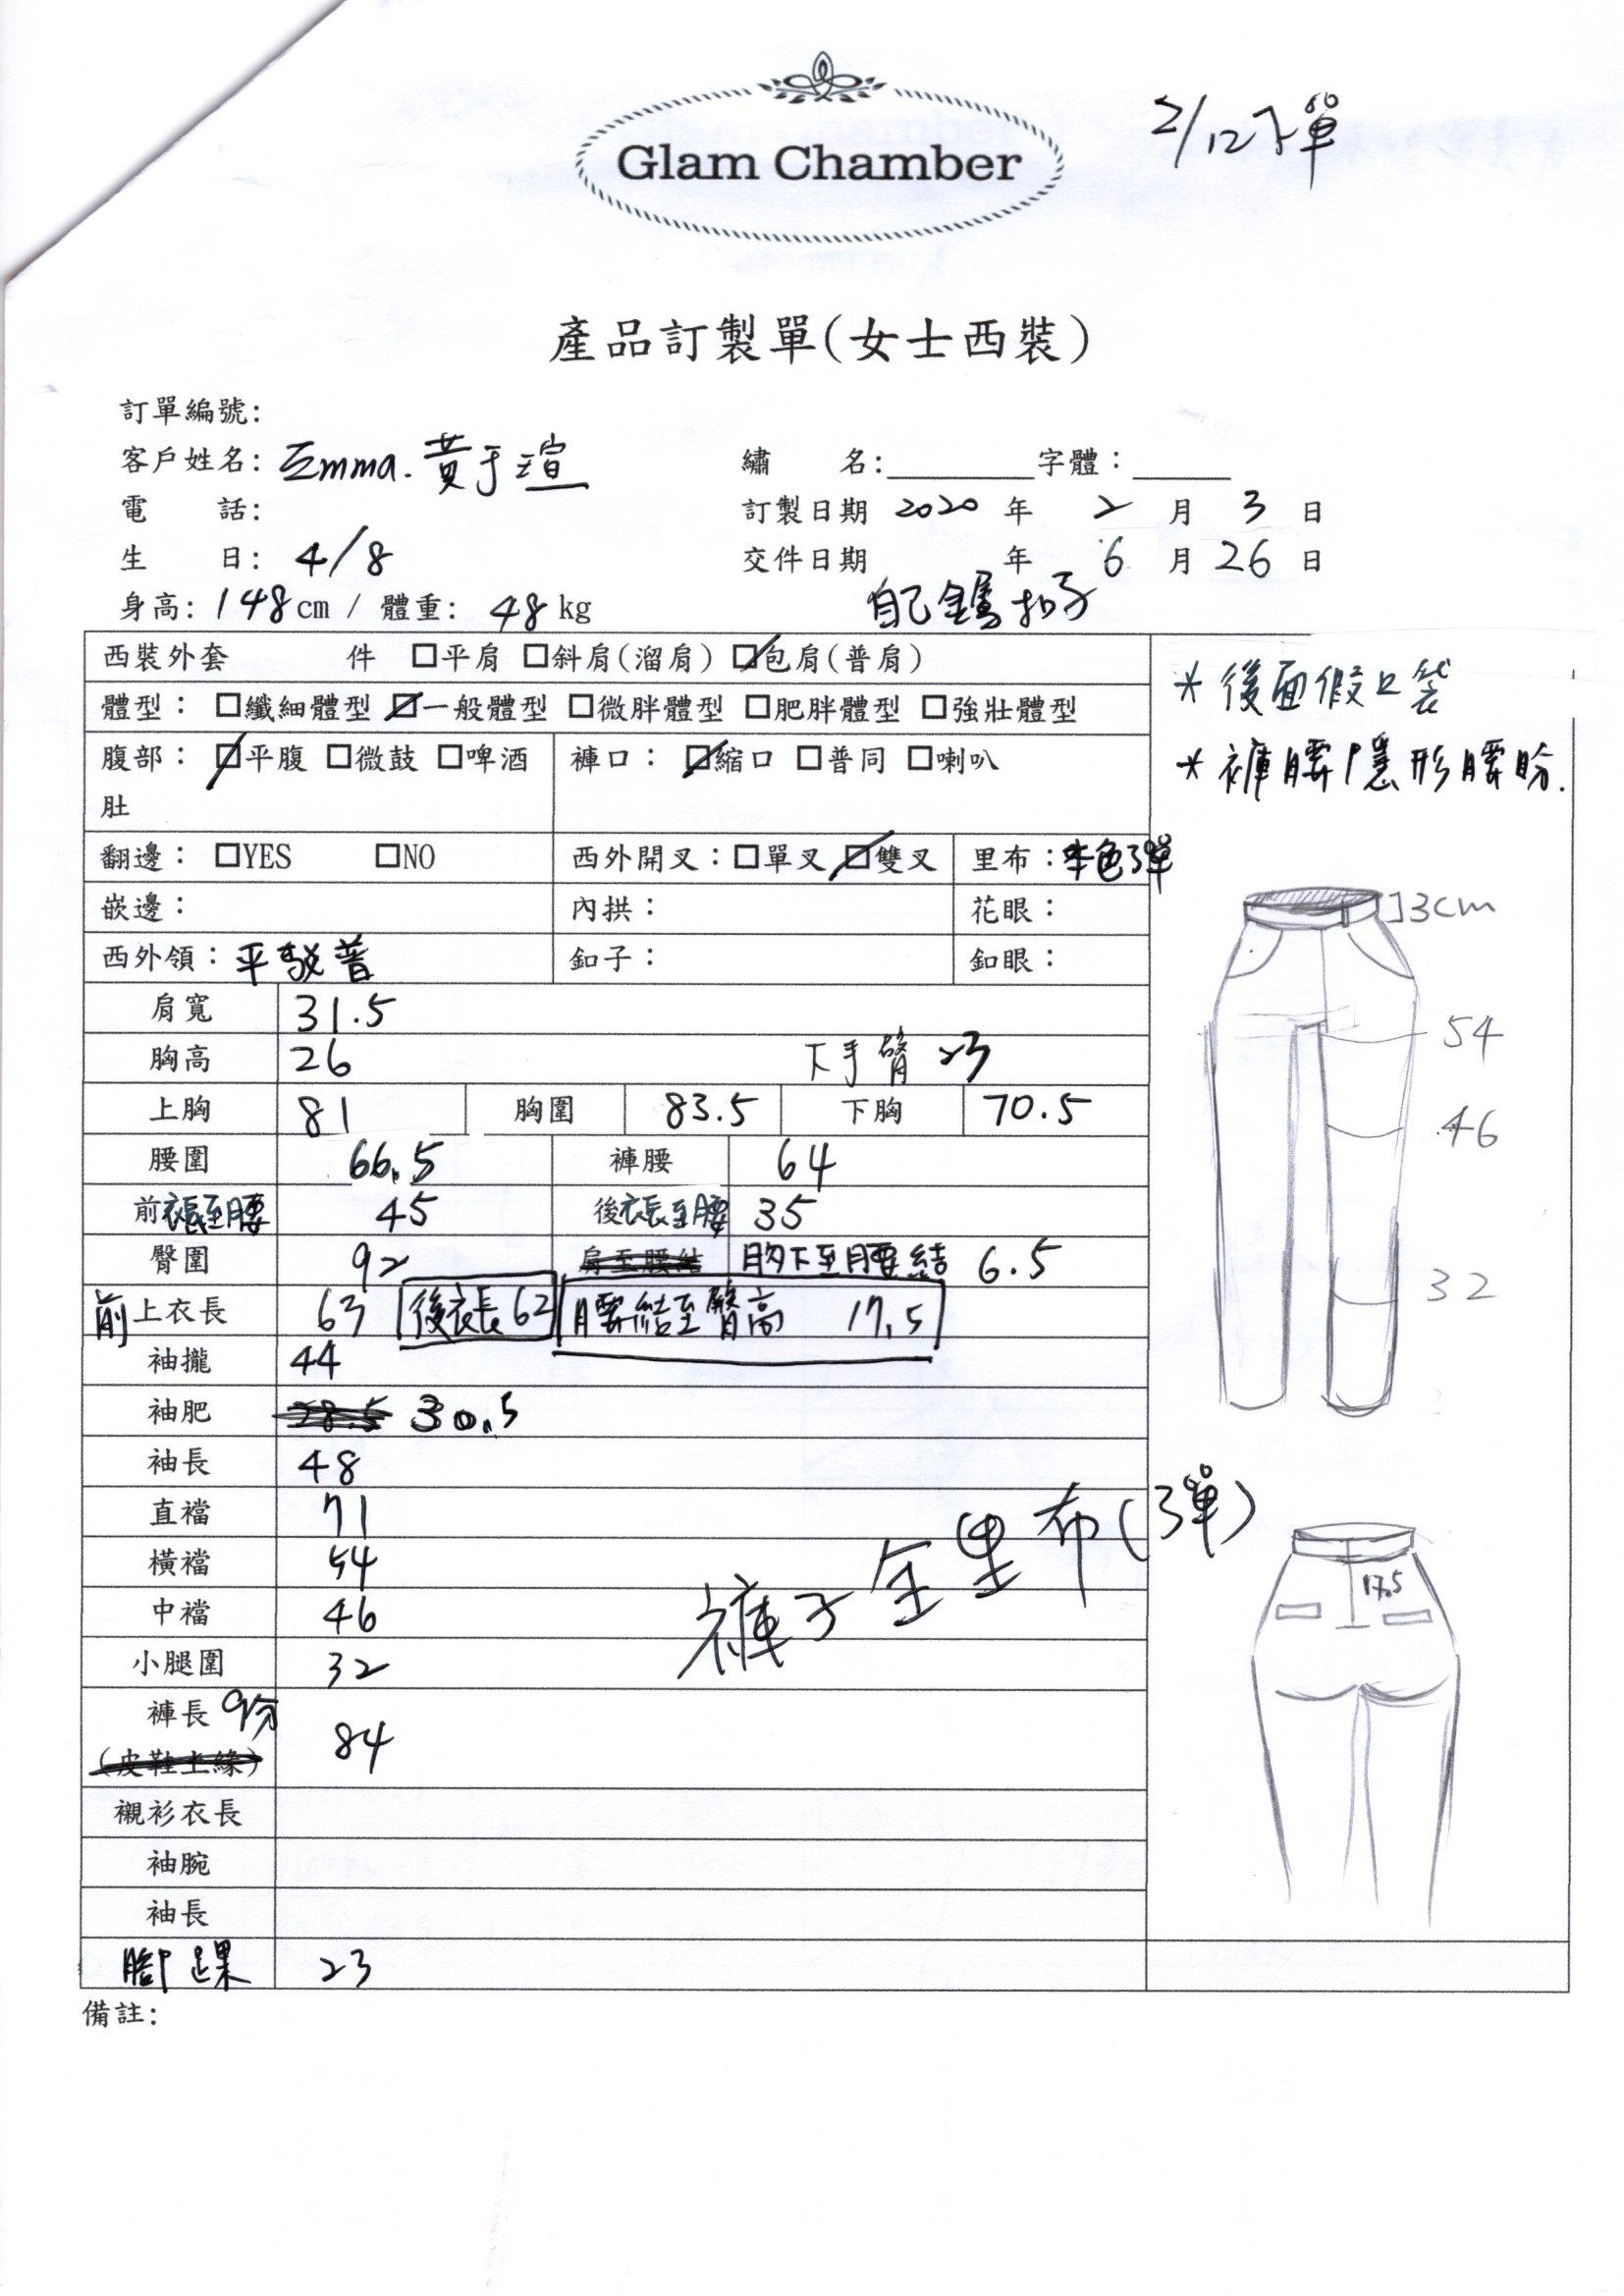 Glam Chamber
2/12下單
產品訂製單(女士西裝)
訂單編號:
客戶姓名: Emma. 黃于瑄 繡 名: 字體:
電 話: 訂製日期 2020 年 2 月 3 日
生 日: 4/8 交件日期 年 6 月 26 日
身高: 148 cm / 體重: 48 kg 自己 扣子
西裝外套 件 □平肩 □斜肩(溜肩) □包肩(普肩)
體型: □纖細體型 □一般體型 □微胖體型 □肥胖體型 □強壯體型
腹部: □平腹 □微鼓 □啤酒肚 褲口: □縮口 □普同 □喇叭
翻邊: □YES □NO 西外開叉: □單叉 □雙叉 里布: 本色彈
嵌邊: 內拱: 花眼:
西外領: 平駁普 釦子: 釦眼:
肩寬 31.5
胸高 26 下手臂 23
上胸 81 胸圍 83.5 下胸 70.5
腰圍 66.5 褲腰 64
前衣長至腰 45 後衣長至腰 35
臀圍 92 肩至腰結 胸下至腰結 6.5
前上衣長 63 後衣長 62 腰結至臀高 17.5
袖攏 44
袖肥 28.5 30.5
袖長 48
直襠 71
橫襠 54
中襠 46
小腿圍 32
褲長 9分 84
(皮鞋上緣)
襯衫衣長
袖腕
袖長
腳踝 23
備註:
* 後面假口袋
* 褲腰隱形腰盼.
3cm
54
46
32
褲子全里布(彈)
17.5